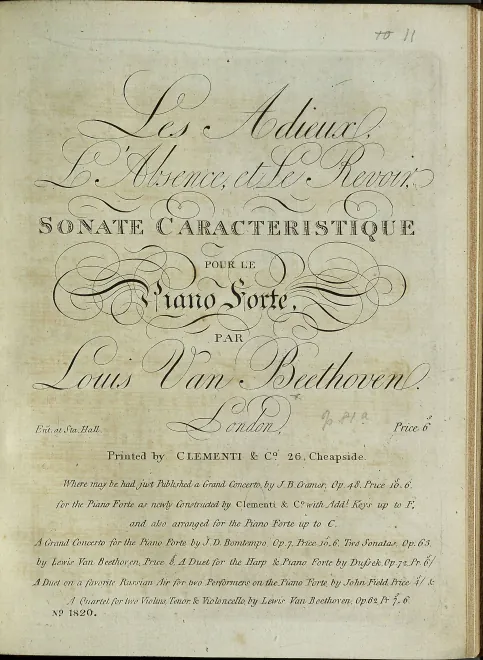 to 11
Les Adieux,
L'Absence, et Le Revoir,
SONATE CARACTERISTIQUE
POUR LE
Piano Forte,
PAR
Louis Van Beethoven.
London,
Op 81a
Ent. at Sta. Hall. Price 6s
Printed by CLEMENTI & Co. 26, Cheapside.
Where may be had just Published a Grand Concerto, by J. B. Cramer, Op. 48. Price 10. 6.
for the Piano Forte as newly Constructed by Clementi & Co. with Addl. Keys up to F,
and also arranged for the Piano Forte up to C.
A Grand Concerto for the Piano Forte by J. D. Bomtempo Op. 7. Price 10. 6. Two Sonatas Op. 63.
by Lewis Van Beethoven, Price A Duet for the Harp & Piano Forte by Dussek, Op. 72. Pr. 6/
A Duet on a favorite Russian Air for two Performers on the Piano Forte by John Field Price &
A Quartet for two Violins, Tenor & Violoncello, by Lewis Van Beethoven, Op. 62 Pr 6
No. 1820.